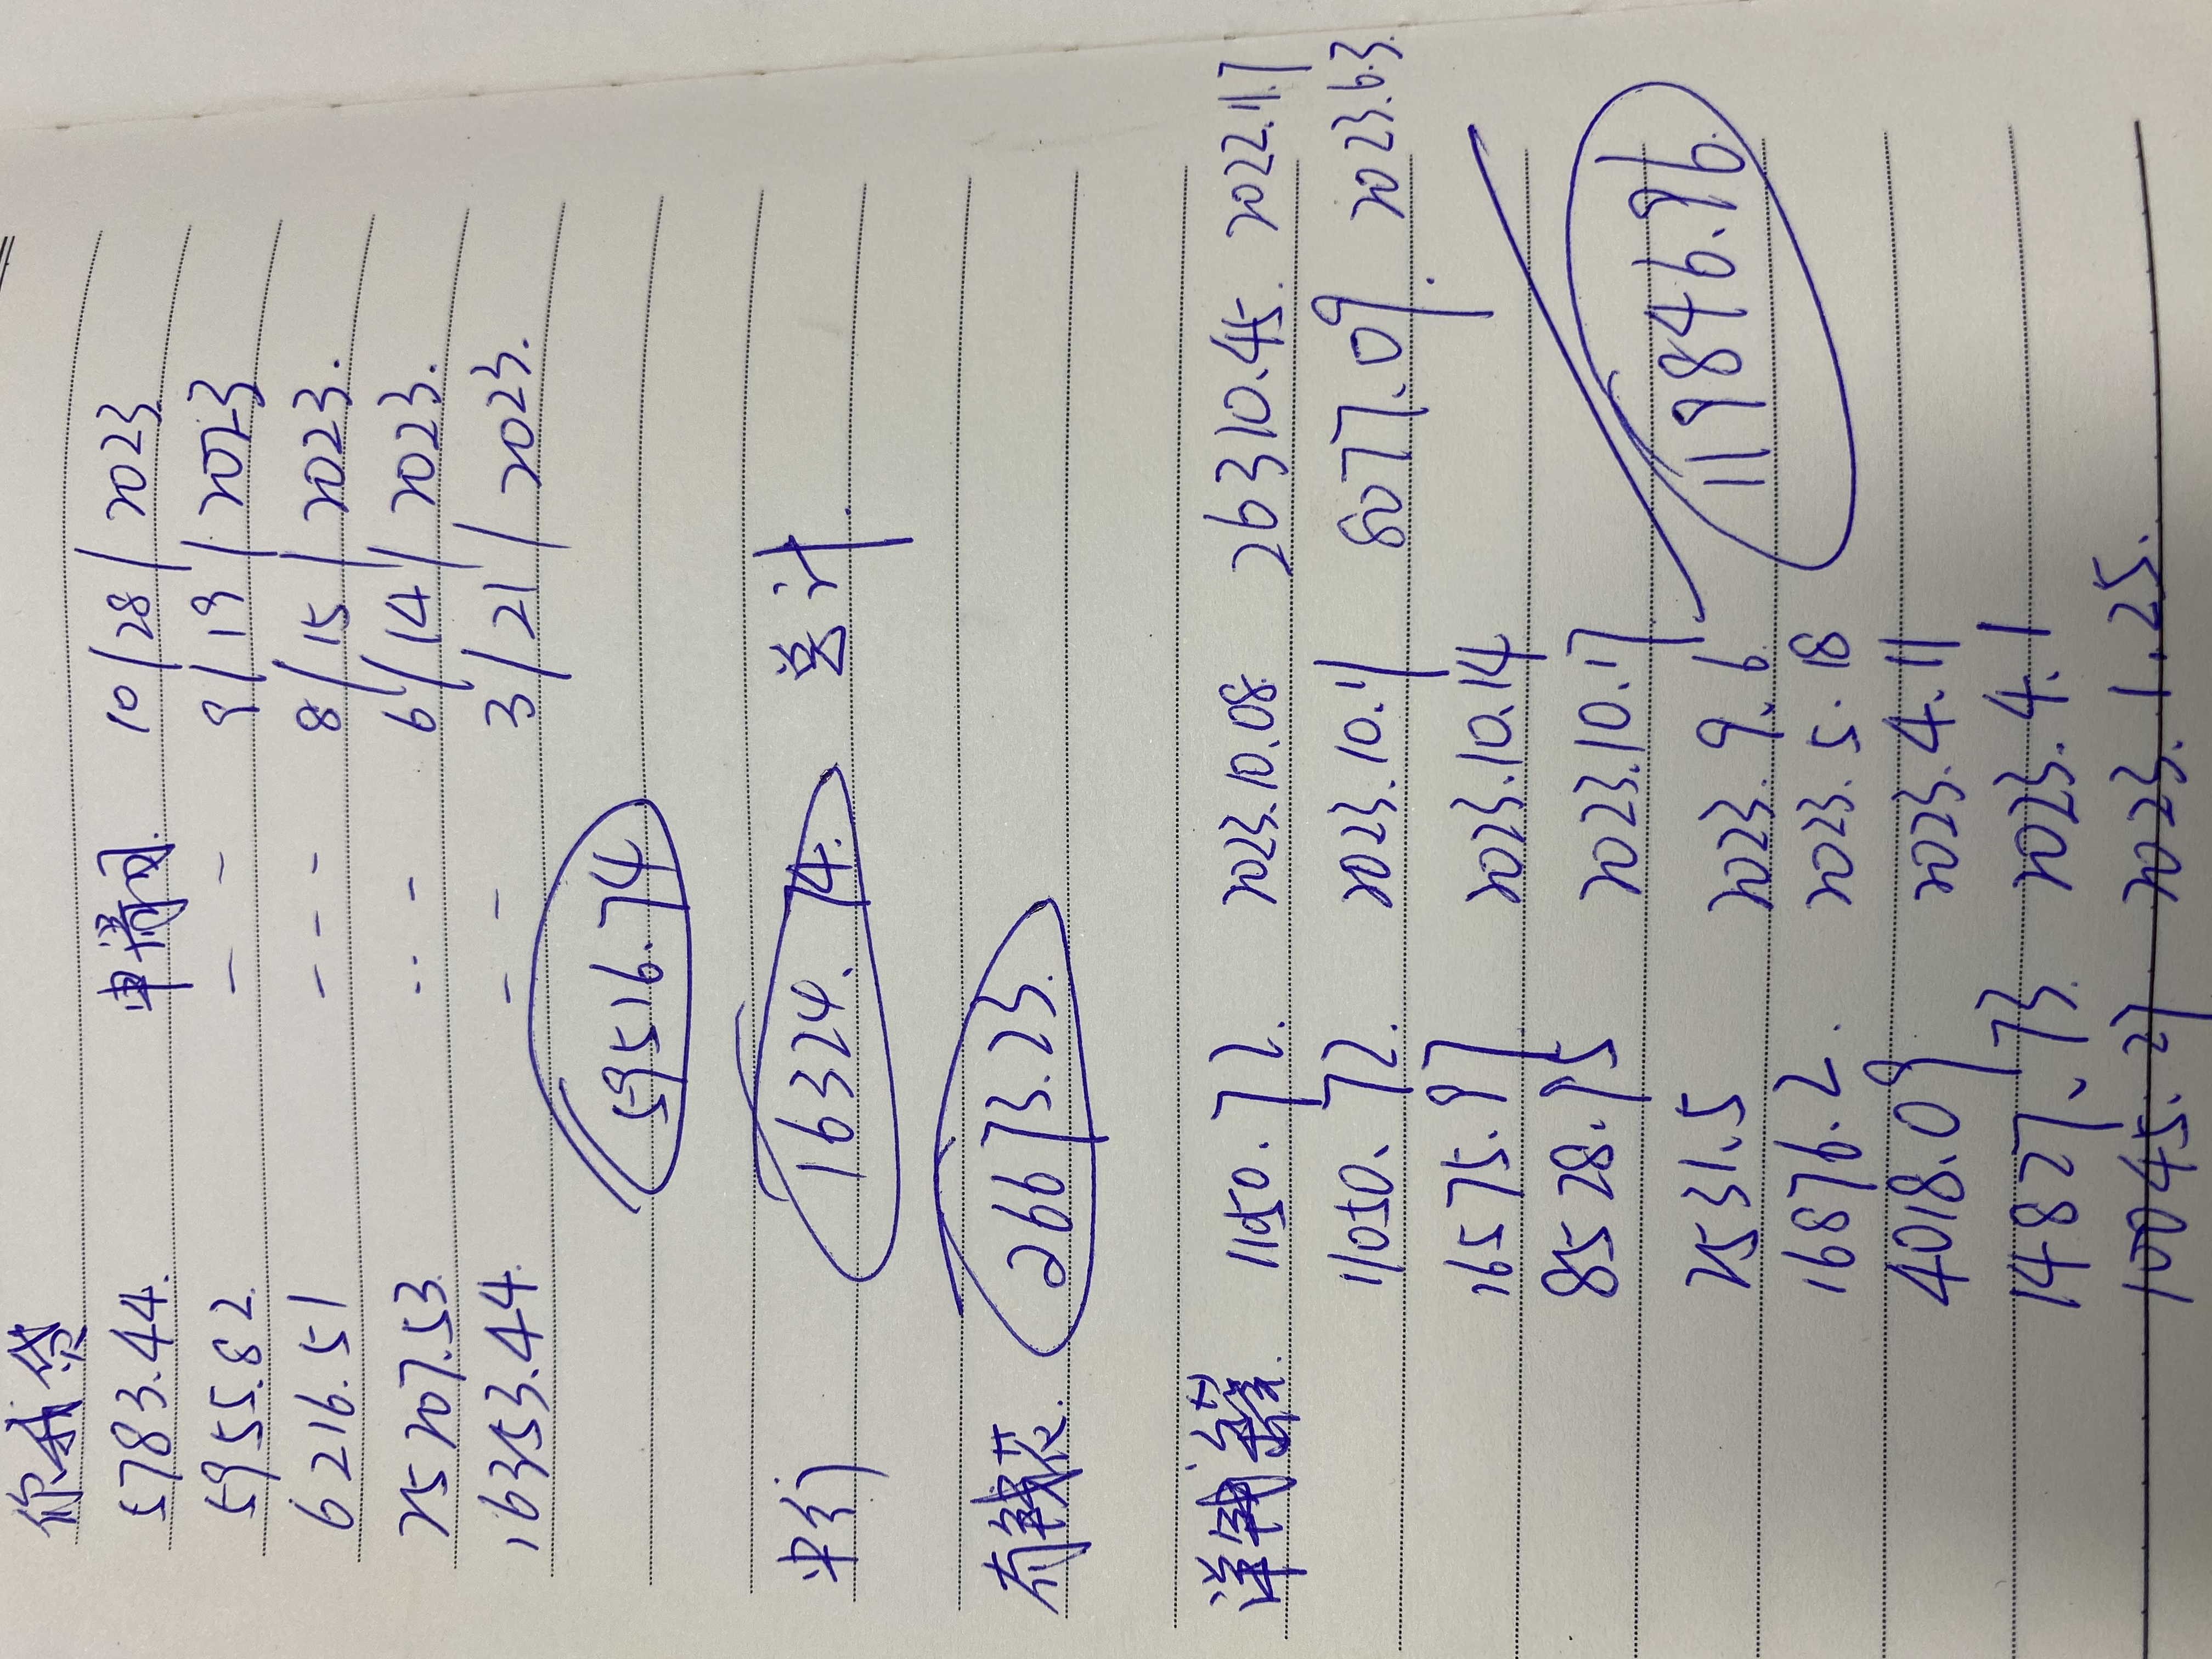 你我贷
5783.44. 申请网. 10/28/2023
5955.82 - - 9/19/2023
6216.51 - - - 8/15/2023.
25207.53 - - - 6/14/2023.
16353.44. - - 3/21/2023.
59516.74
平行 16324.74. 总计.
有钱花. 26673.23.
洋钱罐. 1150.72. 2023.10.08. 26310.45. 2022.11.7
1050.72. 2023.10.11 8077.09. 2023.6.3.
16575.97 2023.10.14
8528.75 2023.10.17
2531.5 2023.9.6
119846.76.
16876.2. 2023.5.18
4018.09 2023.4.11
14827.73. 2023.4.1
10045.27 2023.1.25.